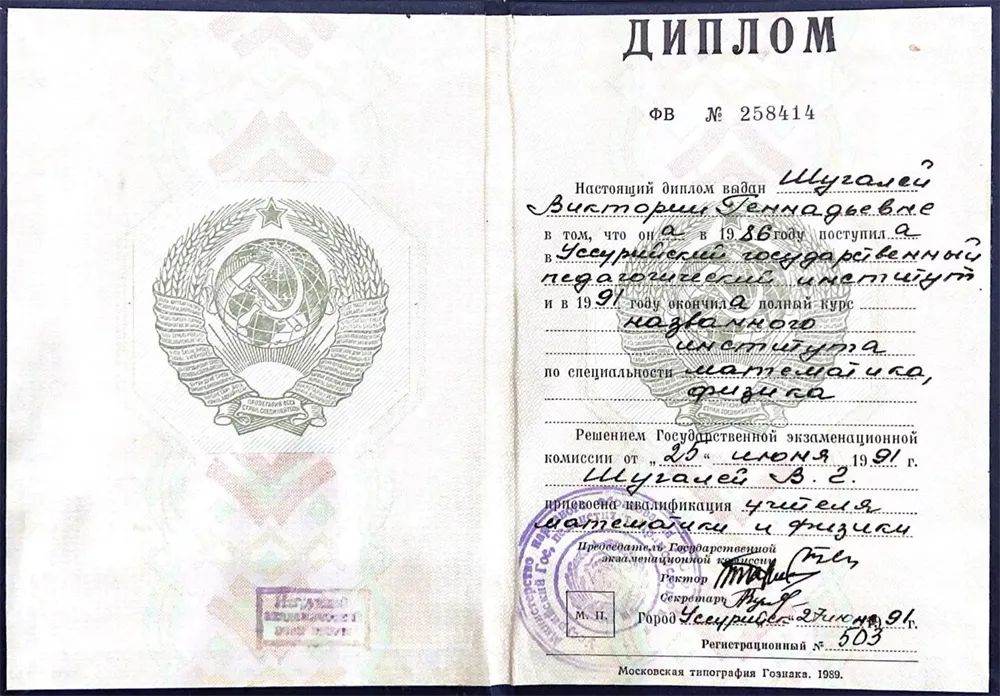 ДИПЛОМ
ФВ № 258414
Настоящий диплом выдан Шугалей
Виктории Геннадьевне
в том, что она в 1986 году поступила
в Уссурийский государственный
педагогический институт
и в 1991 году окончила полный курс
названного
института
по специальности математика,
физика
Решением Государственной экзаменационной
комиссии от „25“ июня 1991 г.
Шугалей В. Г.
присвоена квалификация учителя
математики и физики
Председатель Государственной
экзаменационной комиссии
Ректор
Секретарь
М. П.
Город Уссурийск 27 июня 1991 г.
Регистрационный № 503
Московская типография Гознака. 1989.